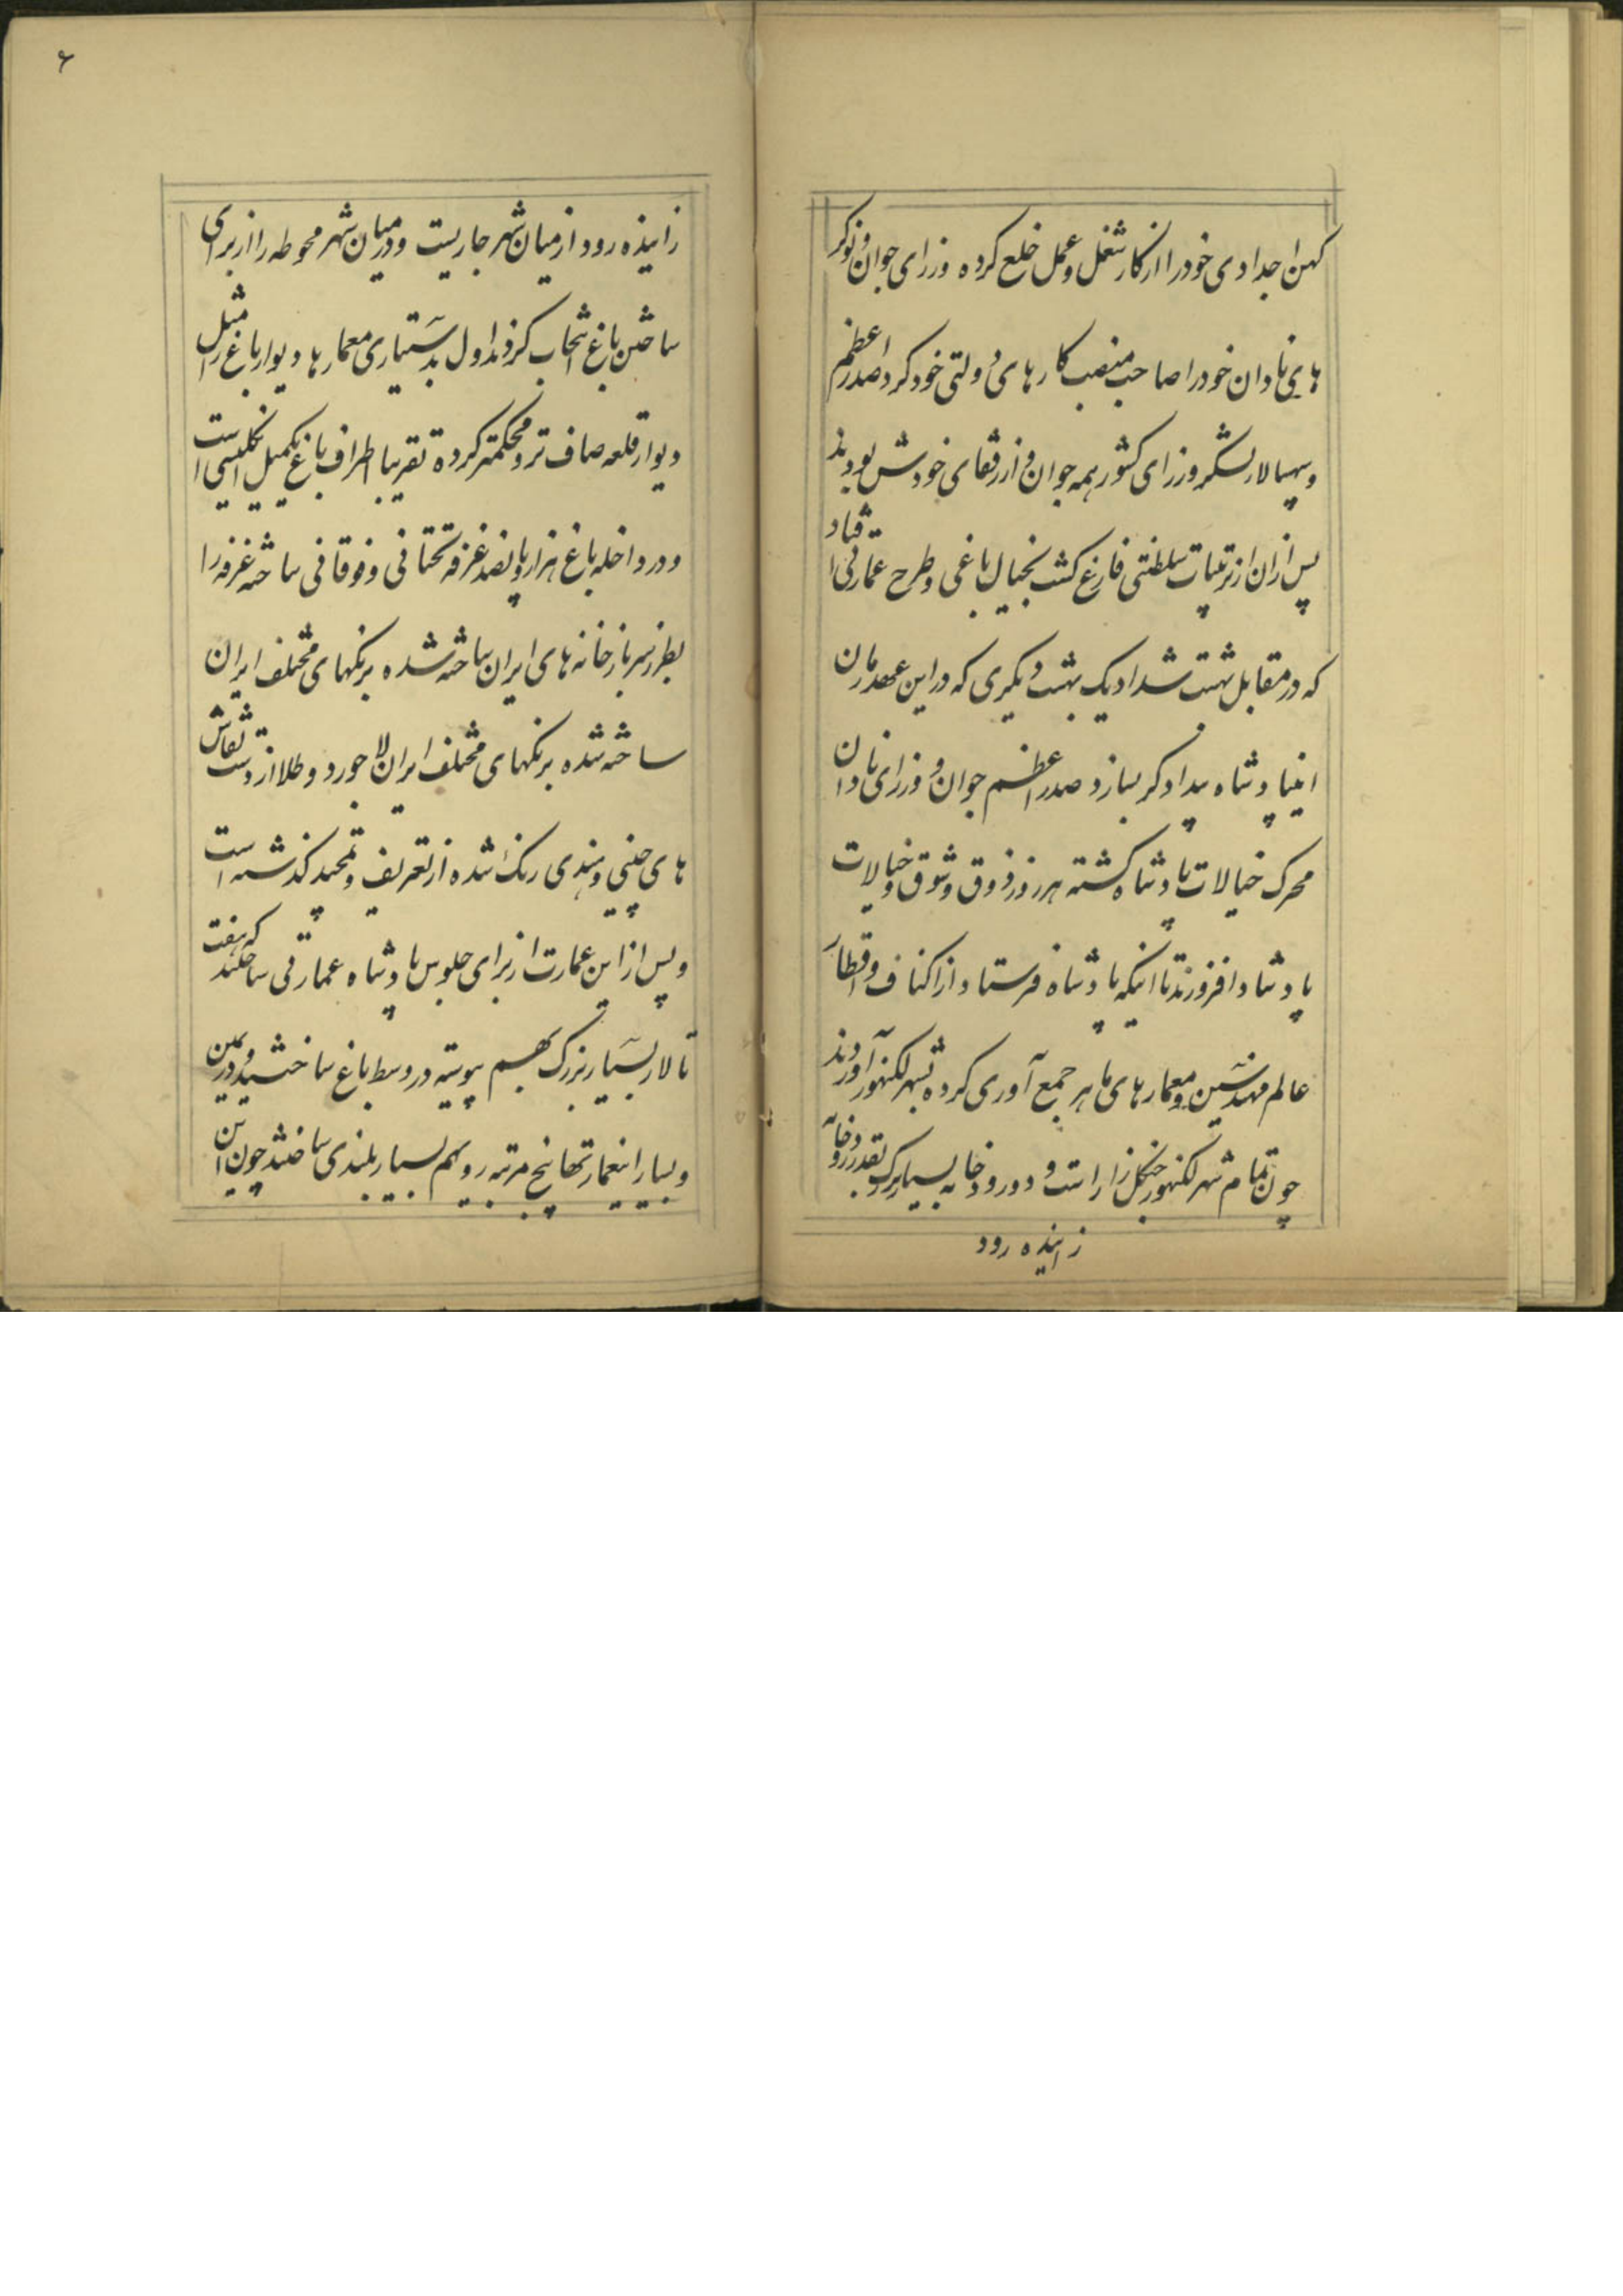 کهن اجدادی خودرا از کار شغل و عمل خلع کرده وزرای جوان و نوکر
های نادان خودرا صاحب منصب کارهای دولتی خود کرد صدر اعظم
و سپهسالار لشکر وزرای کشور همه جوان و از رفقای خودش بودند
پس از ان از ترتیبات سلطنتی فارغ کشت بخیال باغی و طرح عمارتی افتاد
که در مقابل بهشت شداد یک بهشت دیکری که در این عهد زمان
اینپادشاه بیدادکر بسازد صدر اعظم جوان و وزرای نادان
محرک خیالات پادشاه کشته هر روز ذوق و شوق و خیالات
پادشاه افزوزند تا اینکه پادشاه فرستاد از اکناف و اقطار
عالم مهندسین و معمارهای ماهر جمع آوری کرده بشهر لکنهور آوردند
چون تمام شهر لکنهور جنکل زار است و دو رودخانه بسیار بزرک بقدر رودخانه
زاینده رود
۶
زاینده رود از میان شهر جاریست و در میان شهر محوطه را از برای
ساختن باغ انتخاب کردند اول بدستیاری معمارها دیوار باغ را مثل
دیوار قلعه صاف تر و محکمتر کرده تقریبا اطراف باغ یکمیل انکلیسی است
و در داخله باغ هزار و پانصد غرفه تحتانی و فوقانی ساخته غرفه را
بطرز سربازخانه های ایران ساخته شده برنکهای مختلف ایران
ساخته شده برنکهای مختلف ایران لاجورد و طلا از دست نقاش
های چینی و هندی رنک شده از تعریف و تمجید کذشته است
و پس از این عمارت از برای جلوس پادشاه عمارتی ساختند که هفت
تالار بسیار بزرک بهم پیوسته در وسط باغ ساختند و در یمین
و یسار اینعمارتها پنج مرتبه رویهم بسیار بلندی ساختند چون این